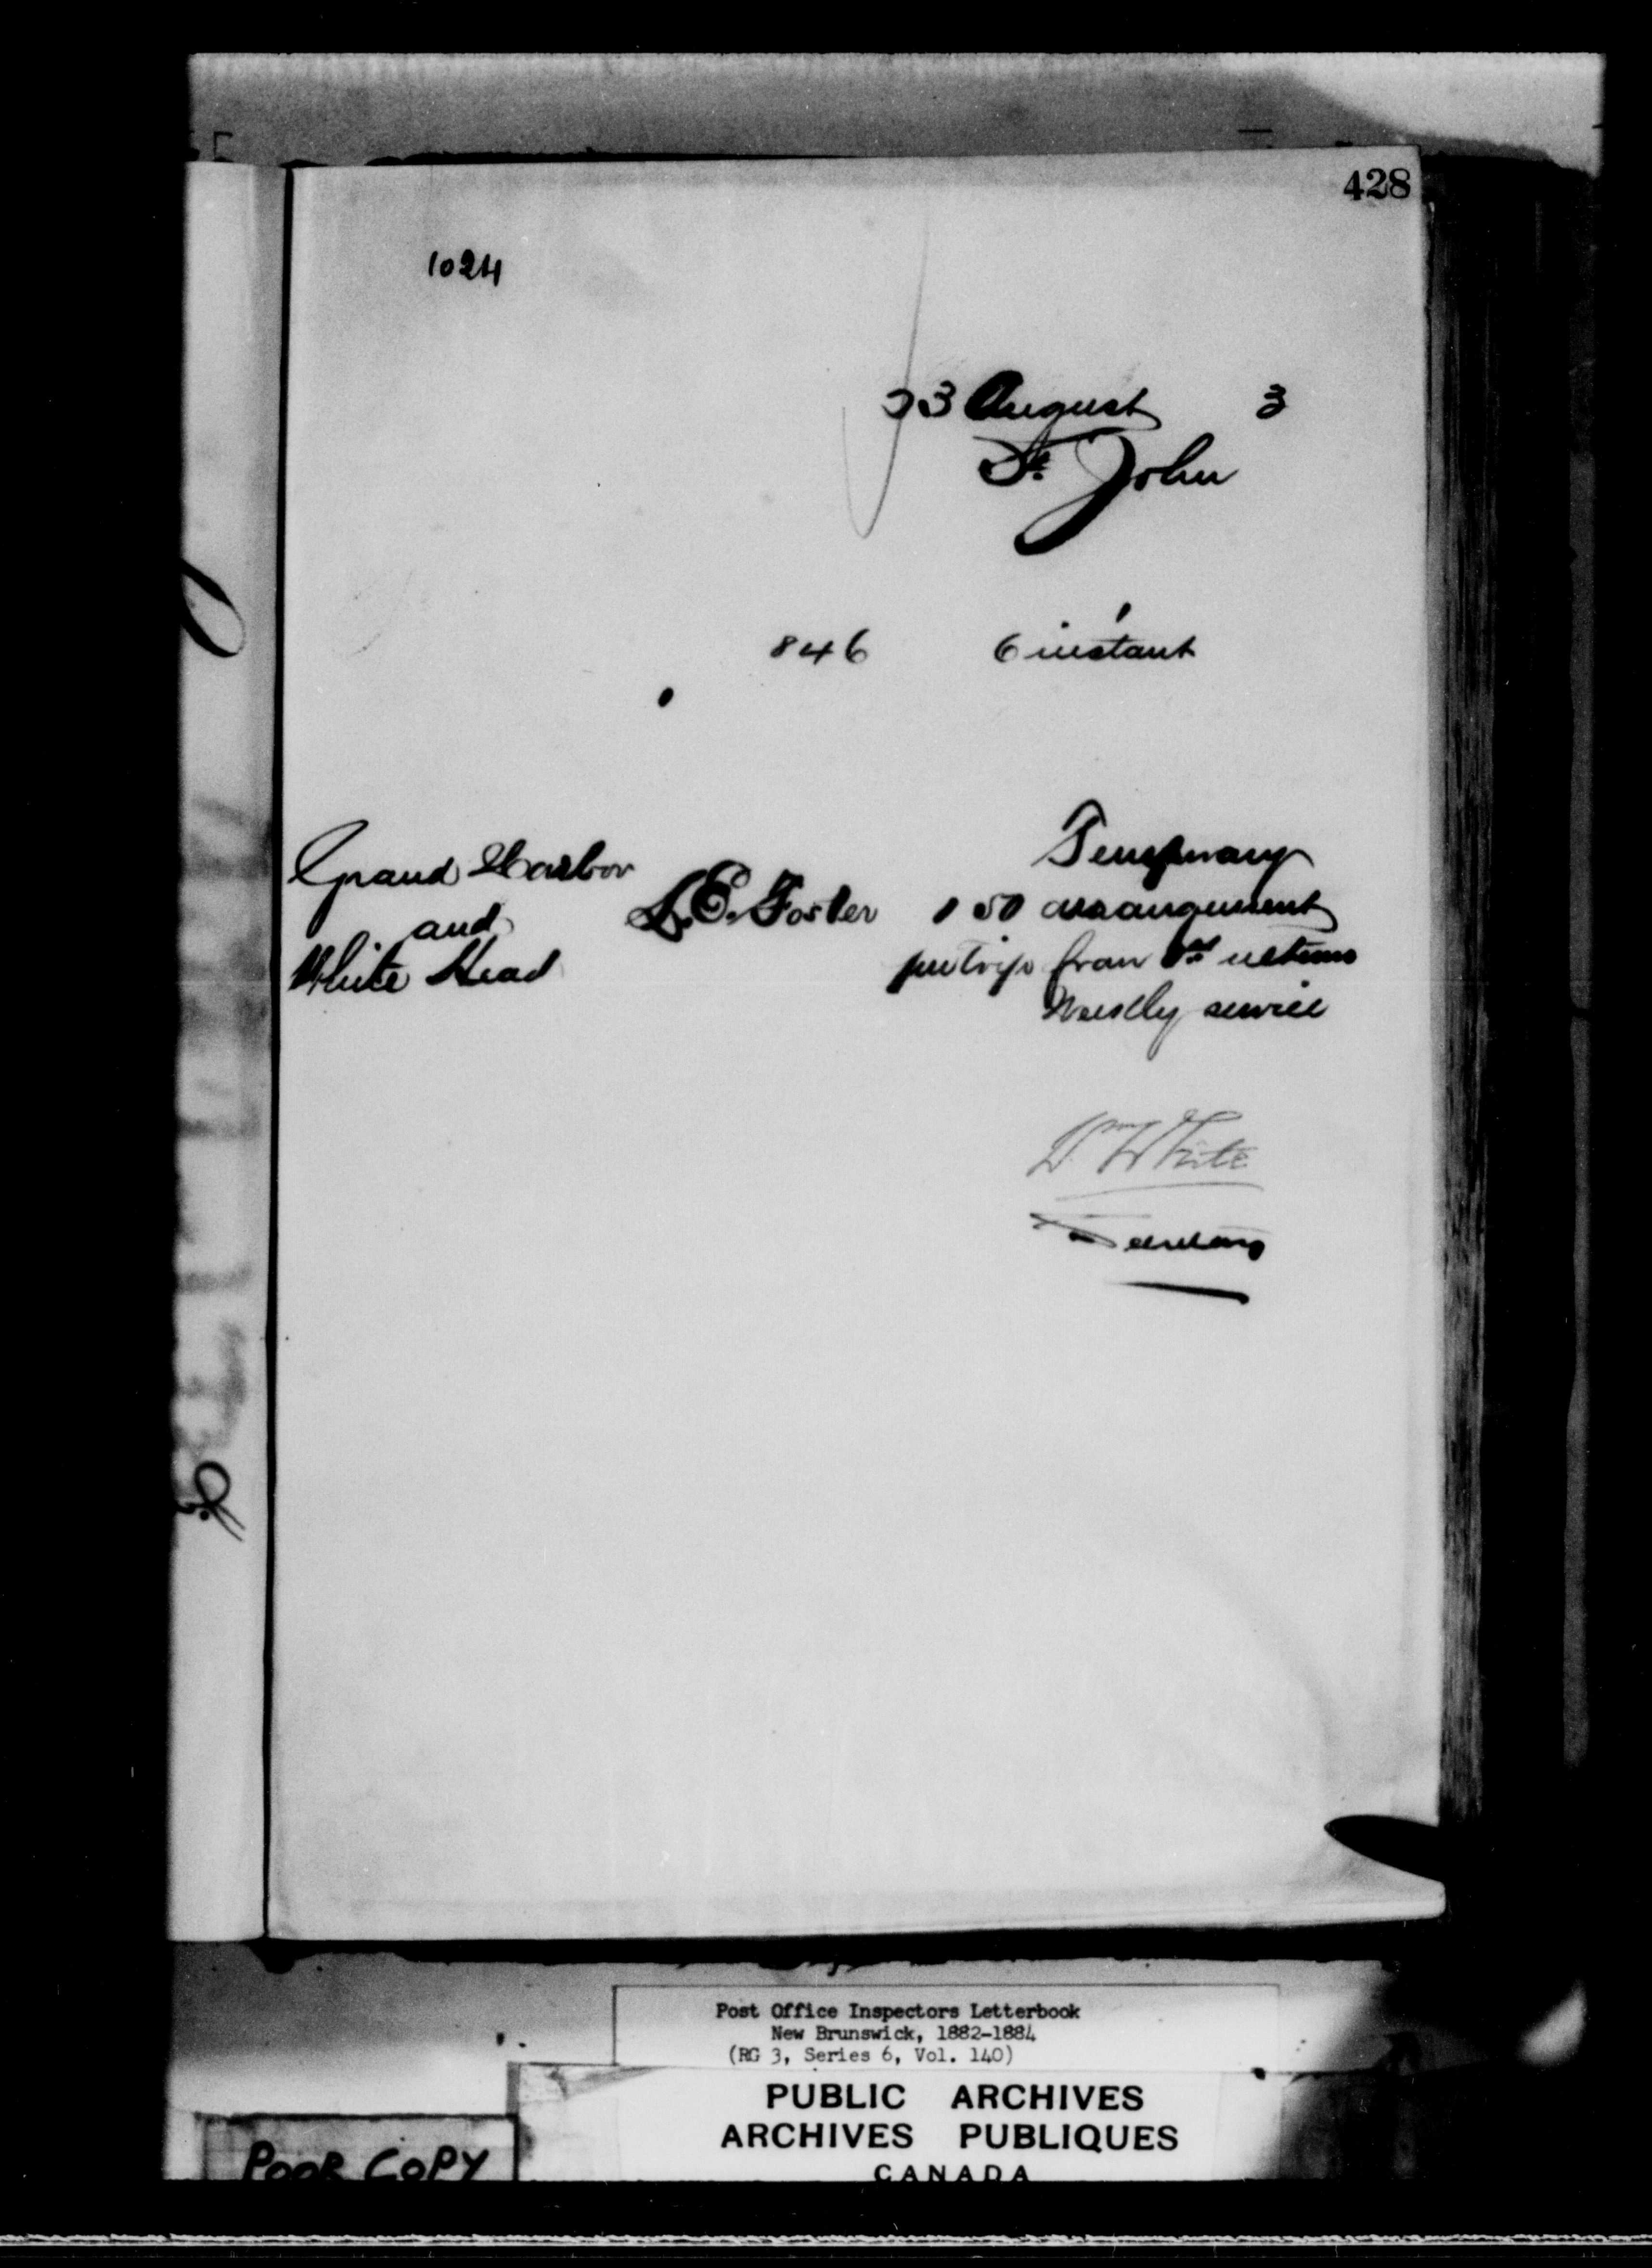 428
1024
23 August 3
St. John
846 6 instant
Grand Harbor
and
White Head
L. E. Foster
1 50
per trip
Temporary
arrangement
from 1st ultimo
Weekly service
Wm White
Secretary
Post Office Inspectors Letterbook
New Brunswick, 1882-1884
(RG 3, Series 6, Vol. 140)
PUBLIC ARCHIVES
ARCHIVES PUBLIQUES
CANADA
POOR COPY